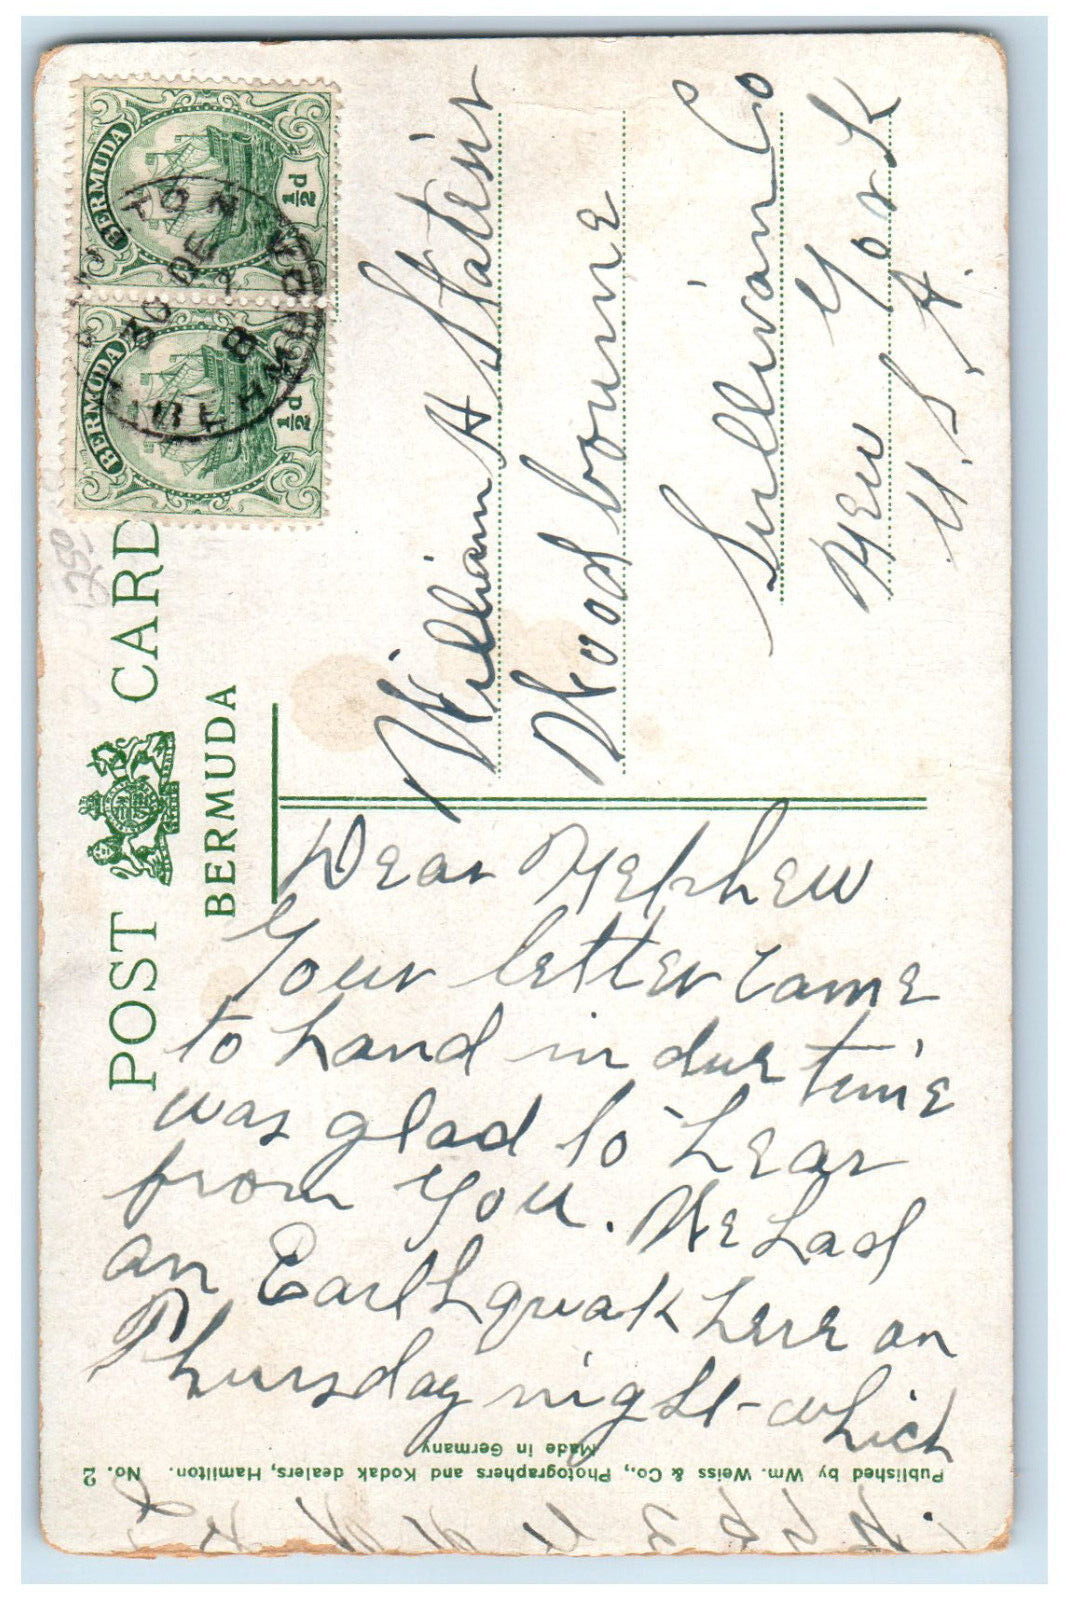 POST CARD
BERMUDA
BERMUDA
½ P
BERMUDA
½ P
William H States
Woodbourne
Sullivan Co
New York
U.S.A.
Dear Nephew
Your letter came
to hand in due time
was glad to hear
from you. We had
an Earthquak here on
Thursday night - which
Made in Germany
Published by Wm. Weiss & Co., Photographers and Kodak dealers, Hamilton. No. 2